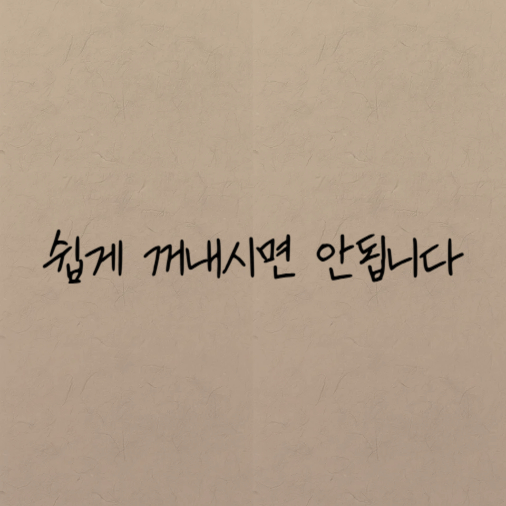 쉽게 꺼내시면 안됩니다